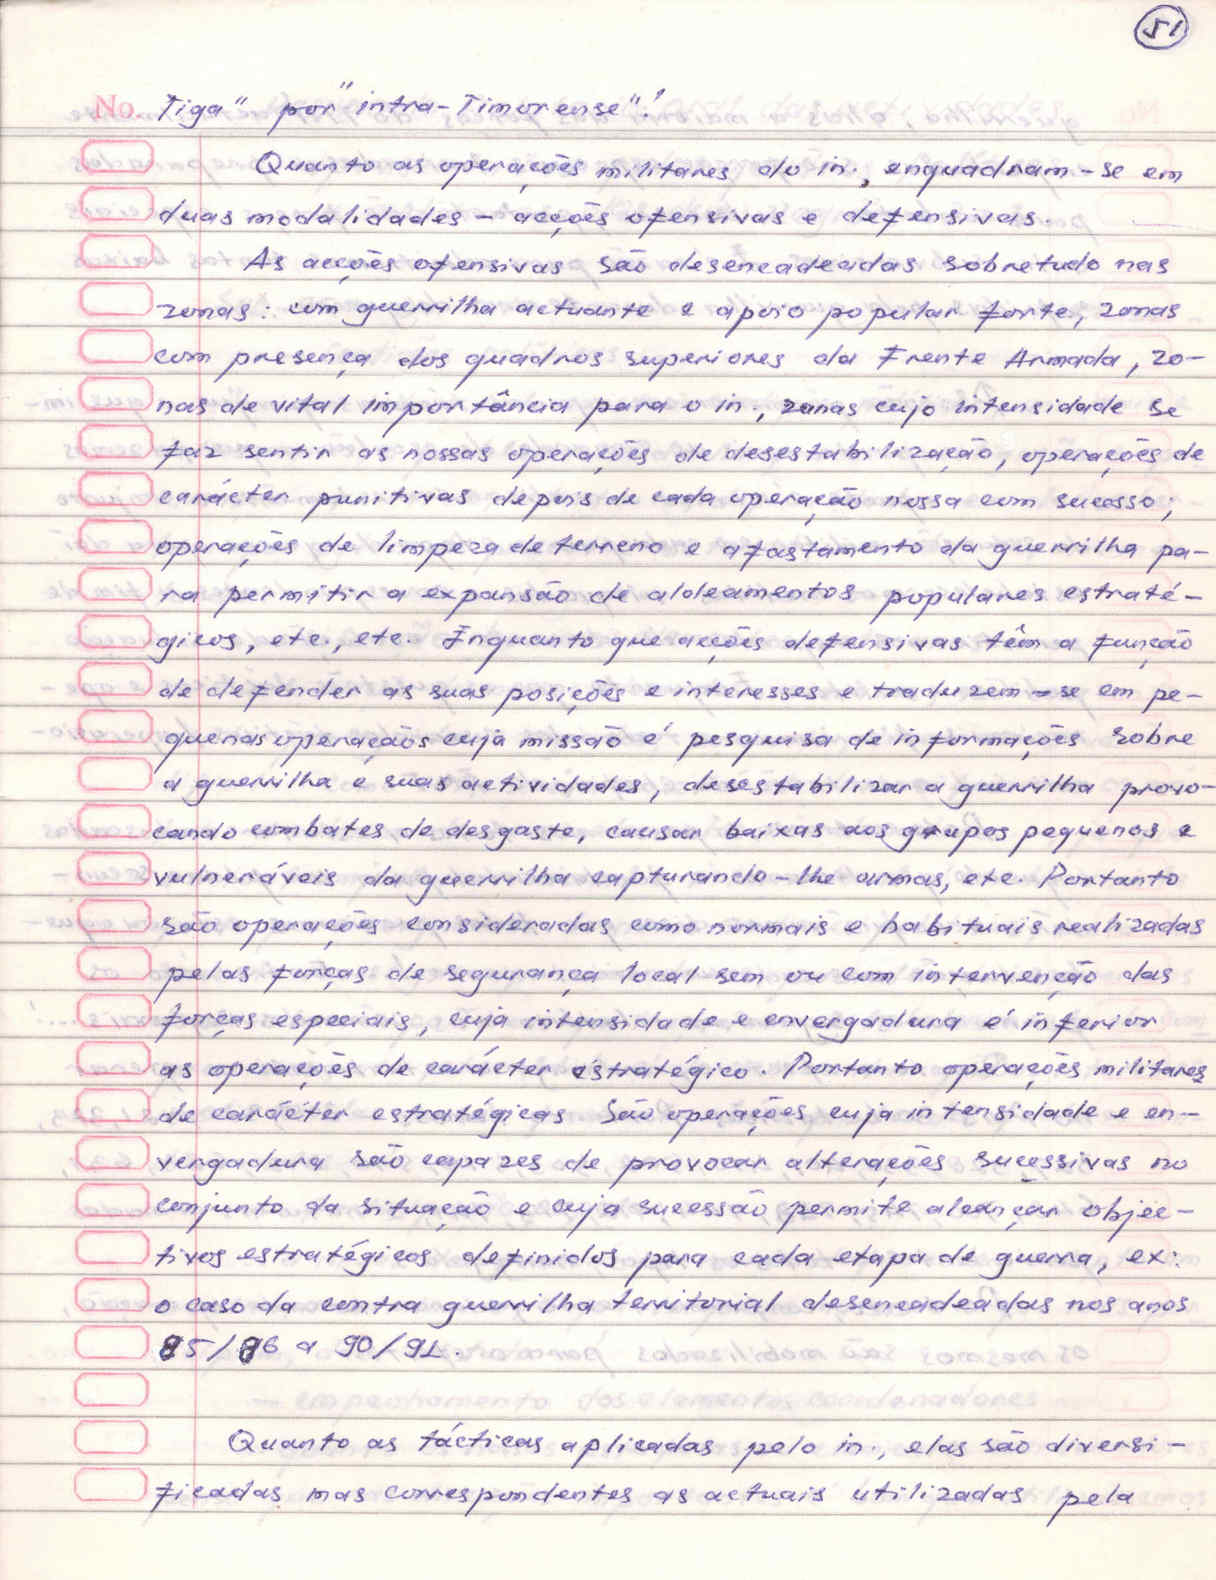 51
No. Tiga" por "intra-Timorense"!
Quanto as operações militares do in., enquadram-se em
duas modalidades - acções ofensivas e defensivas.
As acções ofensivas são desencadeadas sobretudo nas
zonas: com guerrilha actuante e apoio popular forte, zonas
com presença dos quadros superiores da Frente Armada, zo-
nas de vital importância para o in., zonas cujo intensidade se
faz sentir as nossas operações de desestabilização, operações de
carácter punitivas depois de cada operação nossa com sucesso;
operações de limpeza de terreno e afastamento da guerrilha pa-
ra permitir a expansão de aldeamentos populares estraté-
gicos, etc., etc. Enquanto que acções defensivas têm a função
de defender as suas posições e interesses e traduzem-se em pe-
quenas operações cuja missão é pesquisa de informações sobre
a guerrilha e suas actividades, desestabilizar a guerrilha provo-
cando combates de desgaste, causar baixas aos grupos pequenos e
vulneráveis da guerrilha capturando-lhe armas, etc. Portanto
são operações consideradas como normais e habituais realizadas
pelas forças de segurança local sem ou com intervenção das
forças especiais, cuja intensidade e envergadura é inferior
as operações de carácter estratégico. Portanto operações militares
de carácter estratégicas são operações cuja intensidade e en-
vergadura são capazes de provocar alterações sucessivas no
conjunto da situação e cuja sucessão permite alcançar objec-
tivos estratégicos definidos para cada etapa de guerra, ex:
o caso da contra guerrilha territorial desencadeadas nos anos
85/86 a 90/91.
Quanto as tácticas aplicadas pelo in., elas são diversi-
ficadas mas correspondentes as actuais utilizadas pela